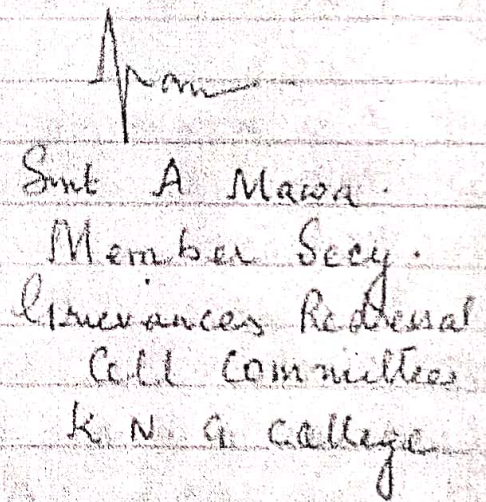 Smt A Mawa.
Member Secy.
Grievances Redressal
Cell Committee
K N G College